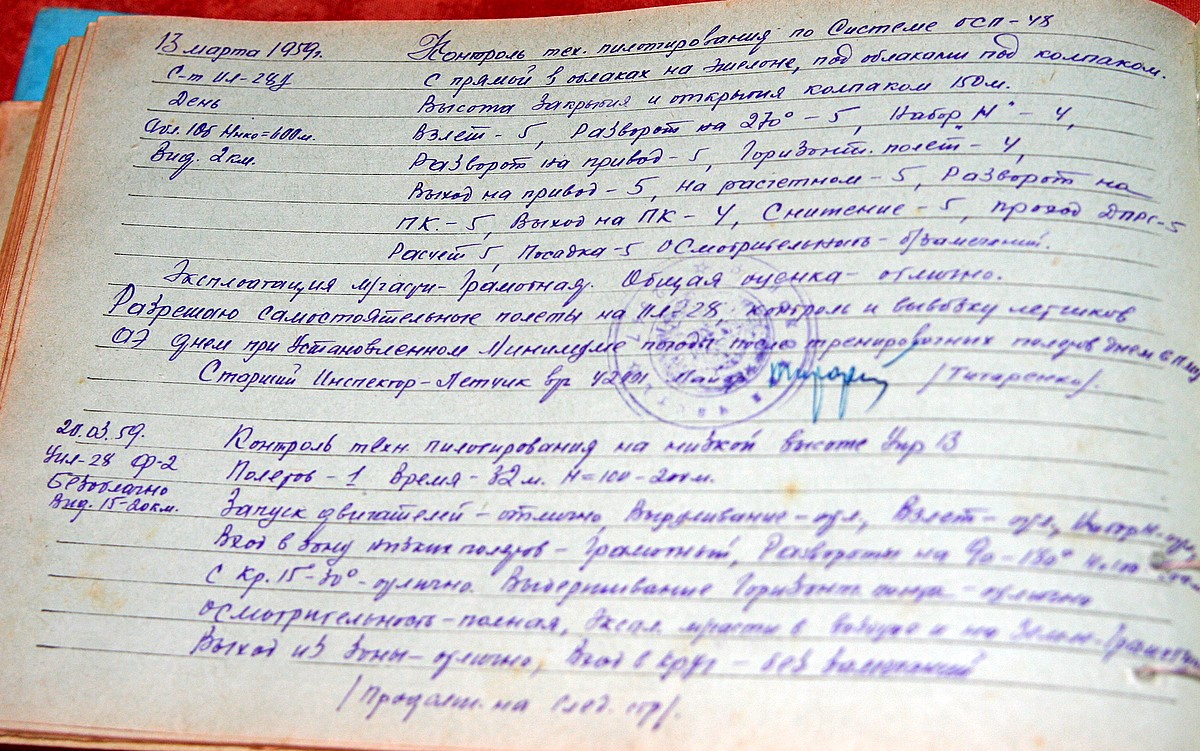 13 марта 1959г. Контроль тех. пилотирования по Системе ОСП-48
С-т Ил-28У С прямой в облаках на эшелоне, под облаками под колпаком.
День Высота закрытия и открытия колпаком 150м.
Обл. 10б Нниж=600м. Взлет - 5, Разворот на 270° - 5, Набор "Н" - 4,
Вид. 2 км. Разворот на привод - 5, Горизонт. полет - 4,
Выход на привод - 5, на расчетном - 5, Разворот на
ПК - 5, Выход на ПК - 4, Снижение - 5 проход ДПРС-5
Расчет 5, Посадка-5 осмотрительность - б/замечаний.
Эксплоатация м/части - Грамотная. Общая оценка - отлично.
Разрешаю самостоятельные полеты на Ил-28, контроль и вывозку летчиков
АЭ днем при установленном минимуме погоды после тренировочных полетов днем в
Старший Инспектор-Летчик в/ч Майор /Титаренко/.
20.03.59. Контроль техн. пилотирования на низкой высоте Упр 13
Уил-28 Ф-2 Полетов - 1 Время - 32 м. Н=100-200м.
Безоблачно
Вид. 15-20км. Запуск двигателей - отлично, Выруливание - отл, Взлет - отл,
Вход в зону низких полетов - Грамотный, Развороты на 90-180°
С кр. 15-30° - отлично. Выдерживание Горизонт. - отлично
осмотрительность - полная, Экспл. м/части в воздухе и на Земле -
Выход из зоны - отлично, Вход в круг - без замечаний
/Продолж. на след. стр/.